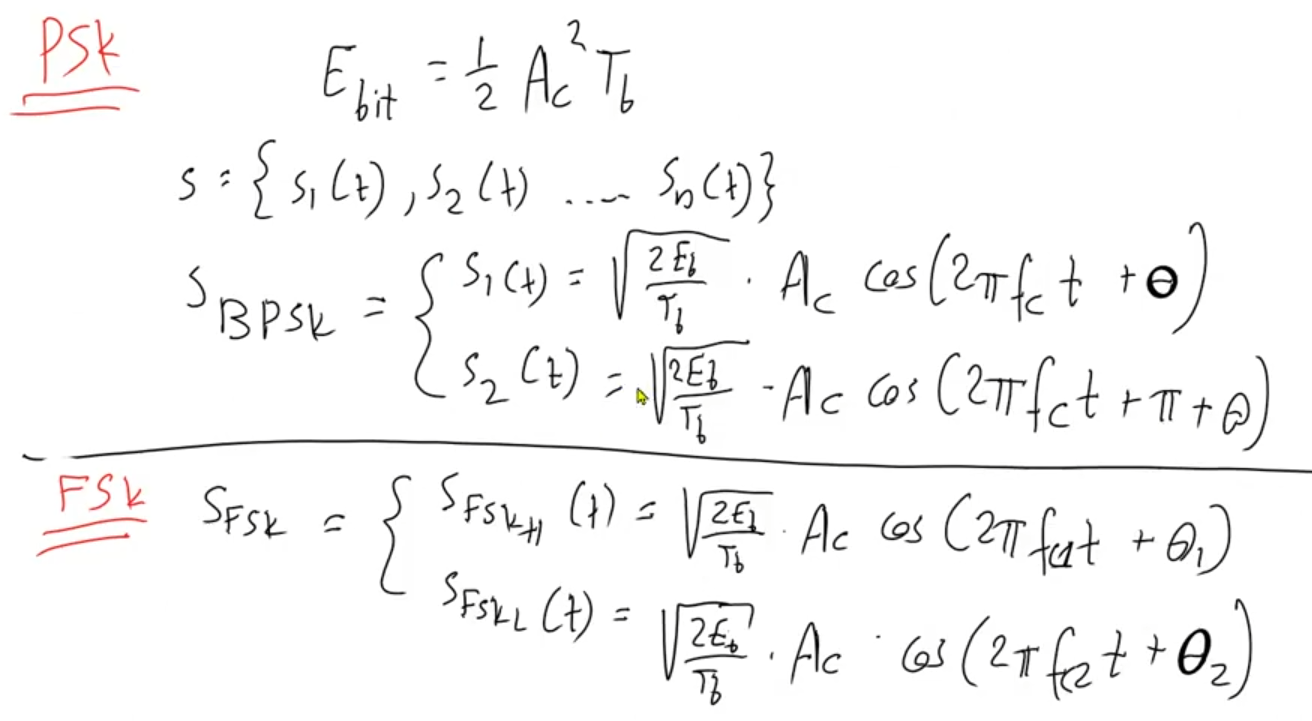 PSK
E_bit = 1/2 A_c² T_b
s = {s₁(t), s₂(t) ..... s_n(t)}
S_BPSK = { s₁(t) = √(2E_b/T_b) · A_c cos(2πf_c t + θ)
s₂(t) = √(2E_b/T_b) · A_c cos(2πf_c t + π + θ)
FSK S_FSK = { S_FSK_H (t) = √(2E_b/T_b) · A_c cos(2πf_c1 t + θ₁)
S_FSK_L (t) = √(2E_b/T_b) · A_c · cos(2πf_c2 t + θ₂)